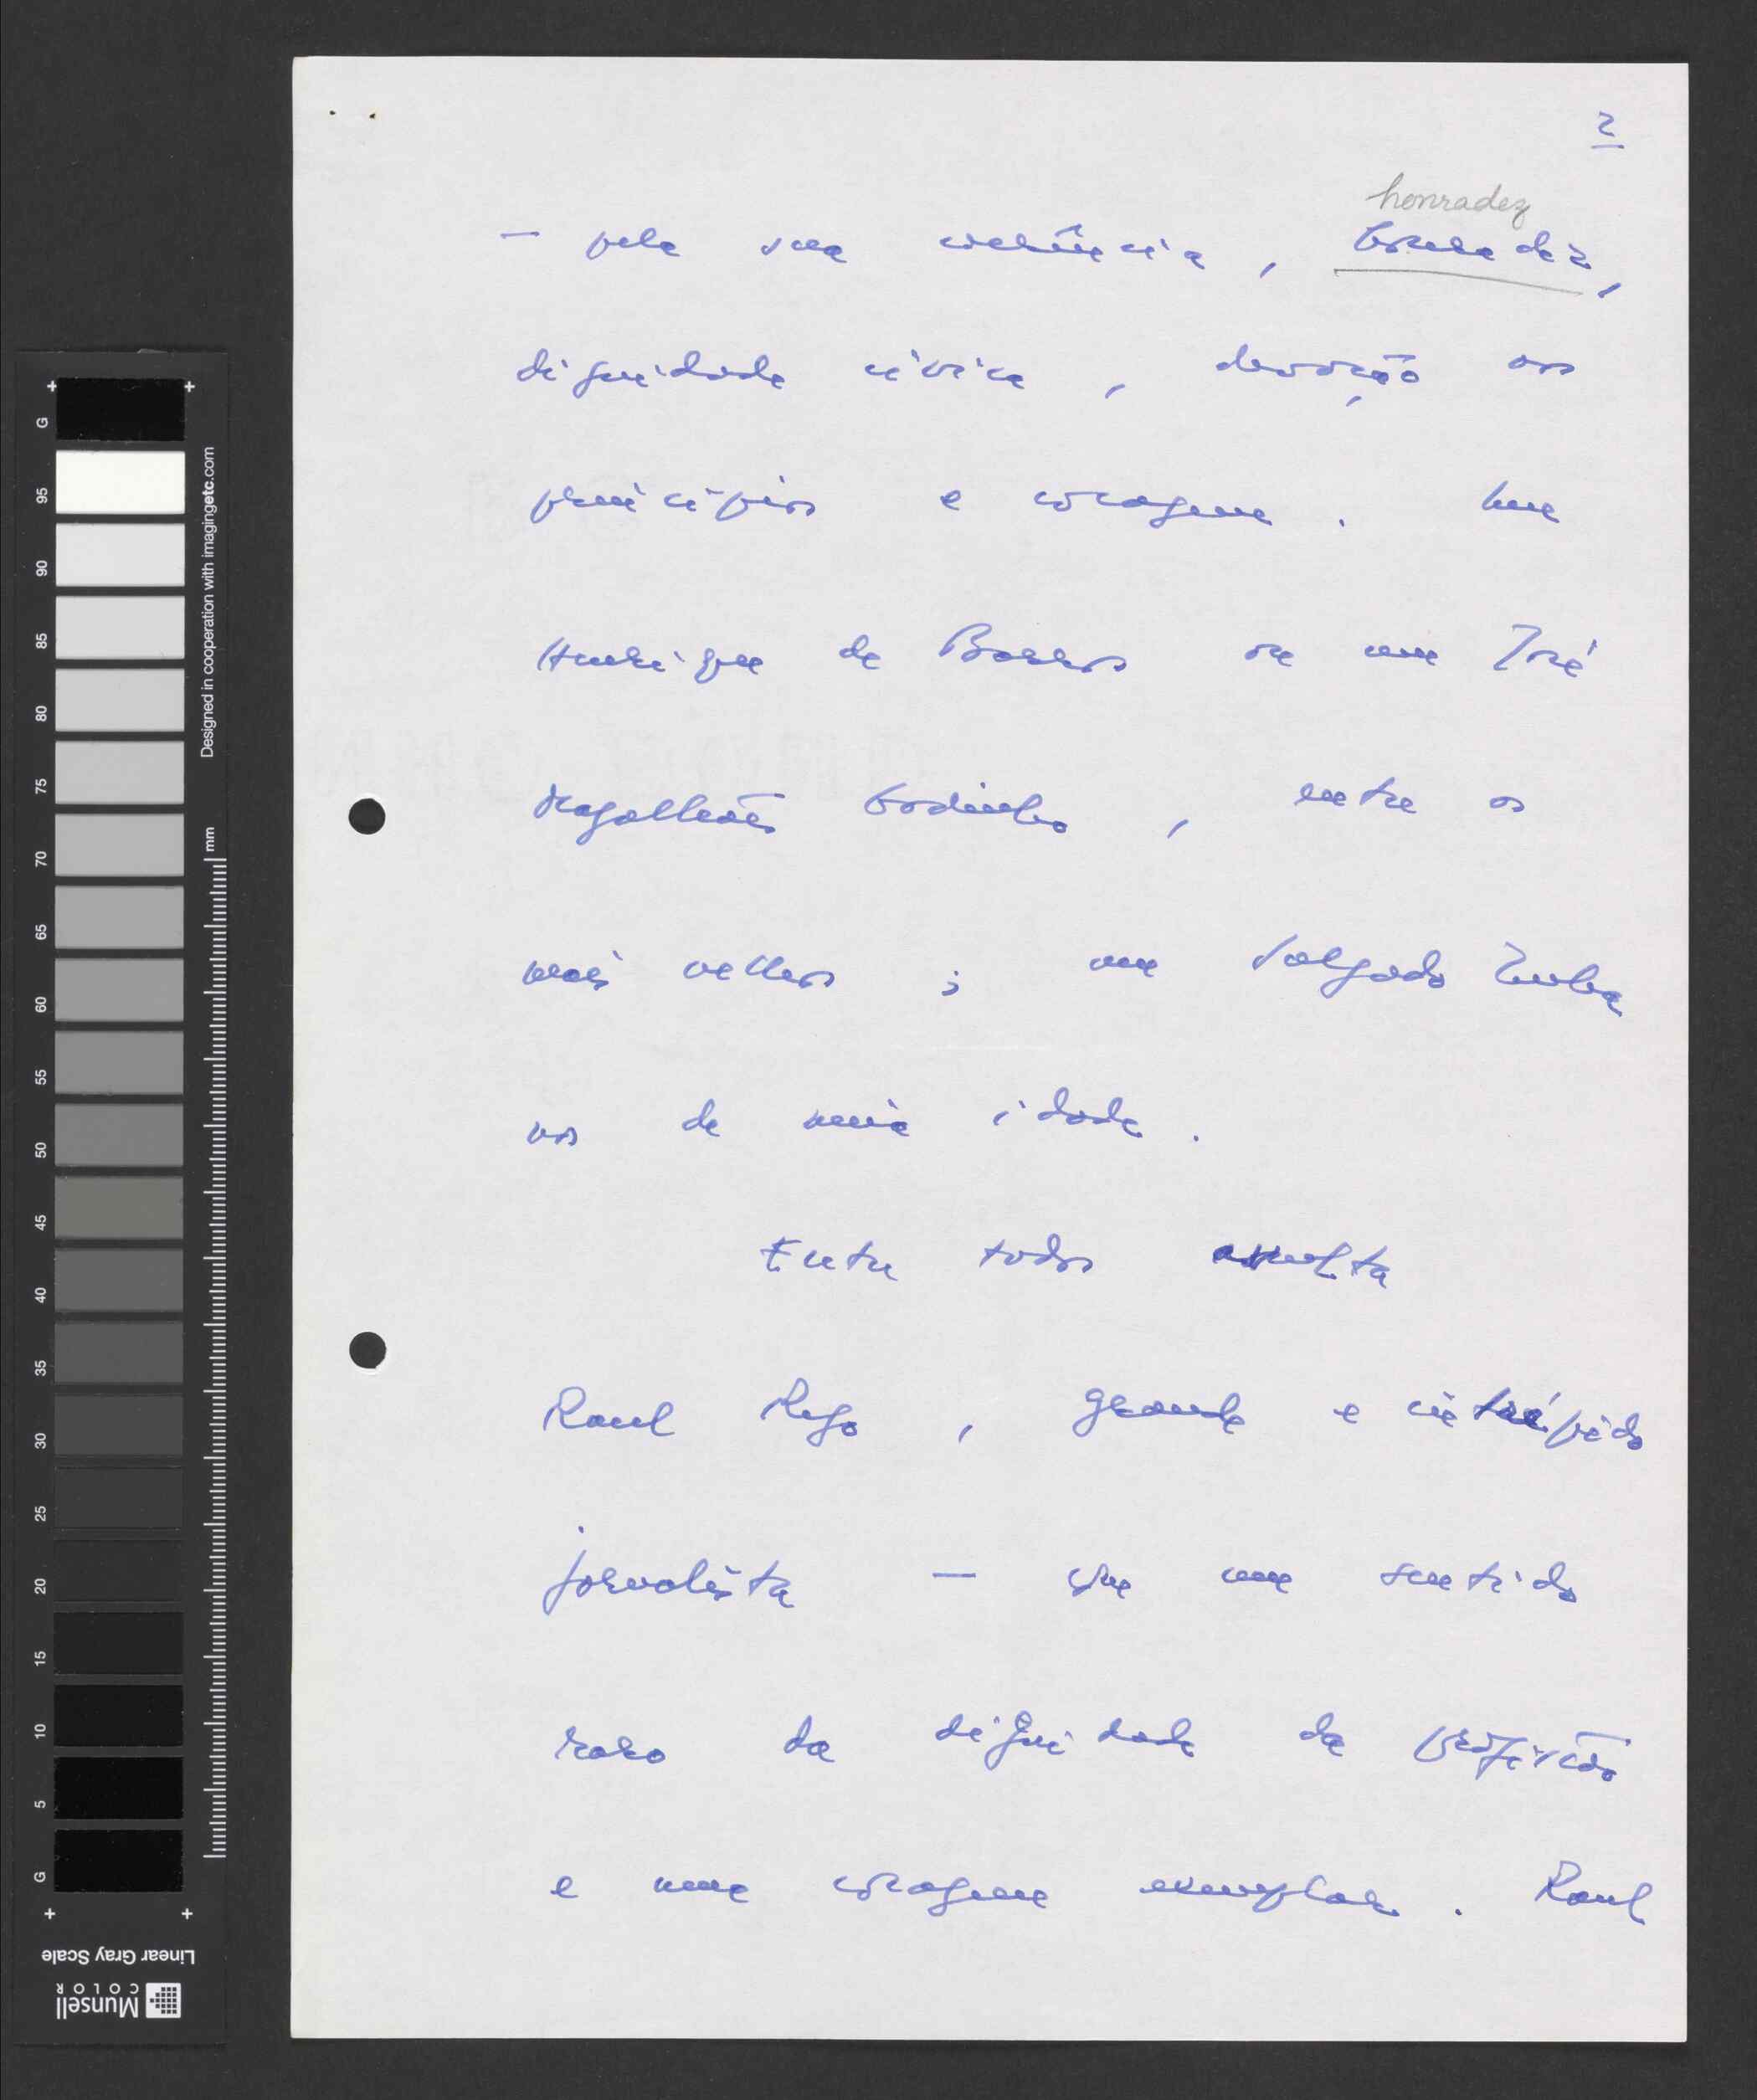 2
honradez
— pela sua coerência, honradez,
dignidade cívica, devoção aos
princípios e coragem. Um
Henrique de Barros ou um José
Magalhães Godinho, entre os
mais velhos; um Salgado Zenha
nos de meia idade.
Entre todos avulta
Raul Rego, grande e intrépido
jornalista — que um sentido
raro da dignidade da profissão
e uma coragem exemplar. Raul
G 95 90 85 80 75 70 65 60 55 50 45 40 35 30 25 20 15 10 5 G
Designed in cooperation with imagingetc.com
mm
Linear Gray Scale
Munsell
COLOR